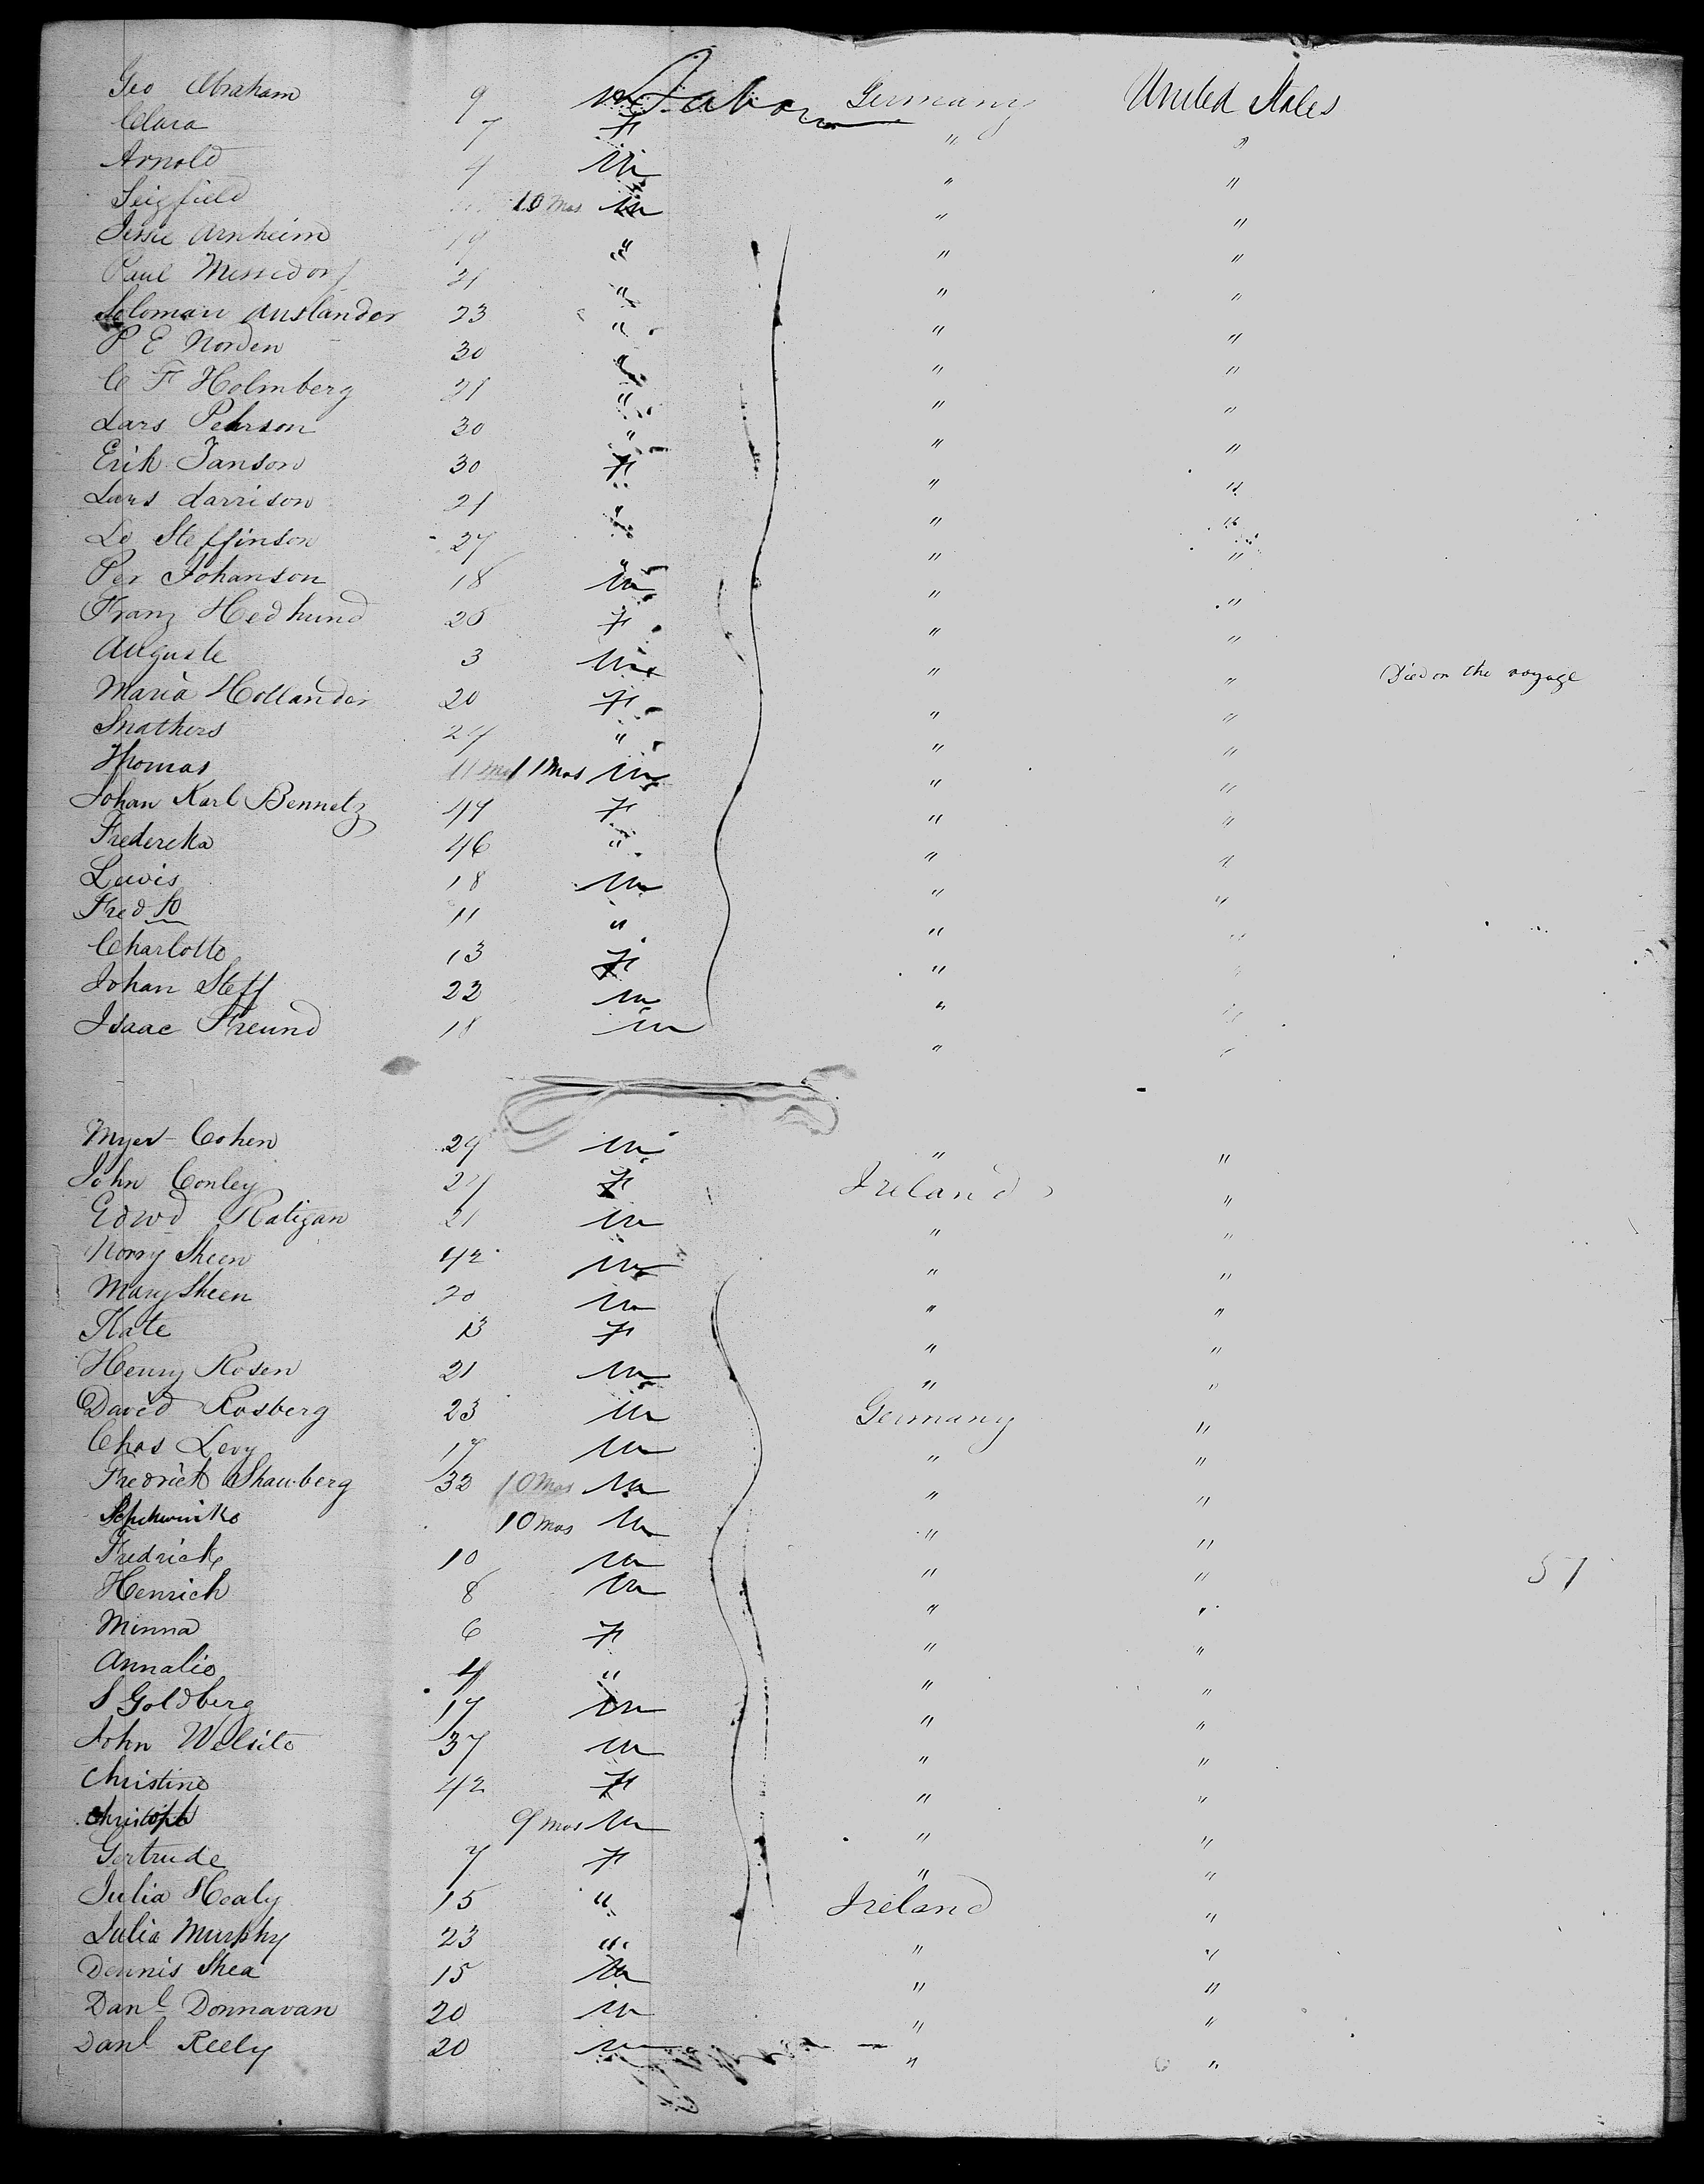 Geo Abraham 9 m Labor Germany United States
Clara 7 F " "
Arnold 4 m " "
Seigfield 10 mos m " "
Jessie Arnheim 19 " " "
Paul 21 " " "
Soloman Auslander 23 " " "
P E Norden 30 " " "
C F Holmberg 21 " " "
Lars Pehrson 30 " " "
Erik Janson 30 F " "
Lars Larrison 21 " " "
Lo Steffinson 27 " " "
Per Johanson 18 m " "
Franz Hedhund 25 F " "
Auguste 3 m " " Died on the voyage
Maria Hollander 20 F " "
Smathers 27 " " "
Thomas 11 mos 11 mos m " "
Johan Karl Bennetz 47 F " "
Fredericka 46 " " "
Lewis 18 m " "
Fred 11 " " "
Charlotte 13 F " "
Johan Steff 22 m " "
Isaac Freund 18 m " "
Myer Cohen 29 m " "
John Conley 27 F Ireland "
Edwd Ratigan 21 m " "
Norry Sheen 42 m " "
Mary Sheen 20 m " "
Kate 13 F " "
Henry Rosen 21 m " "
David Rosberg 23 m Germany "
Chas Levy 17 m " "
Fredrick Shauberg 32 10 mos m " "
10 mos m " "
Fredrick 10 m " "
Henrich 8 m " " 57
Minna 6 F " "
Annalie 4 " " "
S Goldberg 17 m " "
John Welsite 37 m " "
Christine 42 F " "
Christoph 9 mos m " "
Gertrude 7 F " "
Julia Healy 15 " Ireland "
Julia Murphy 23 " " "
Dennis Shea 15 m " "
Danl Donnavan 20 m " "
Danl Reely 20 m " "